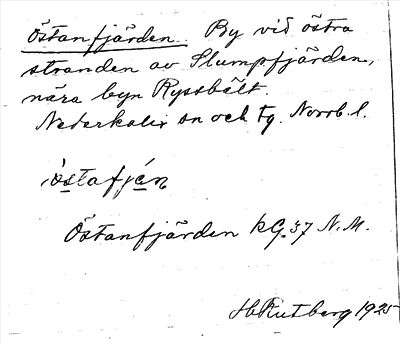 Östanfjärden. By vid östra
stranden av Slumpfjärden,
nära byn Ryssbält.
Nederkalix sn och tg. Norrb. l.
östafjén
Östanfjärden kG. 37 N. M.
H Rutberg 1925